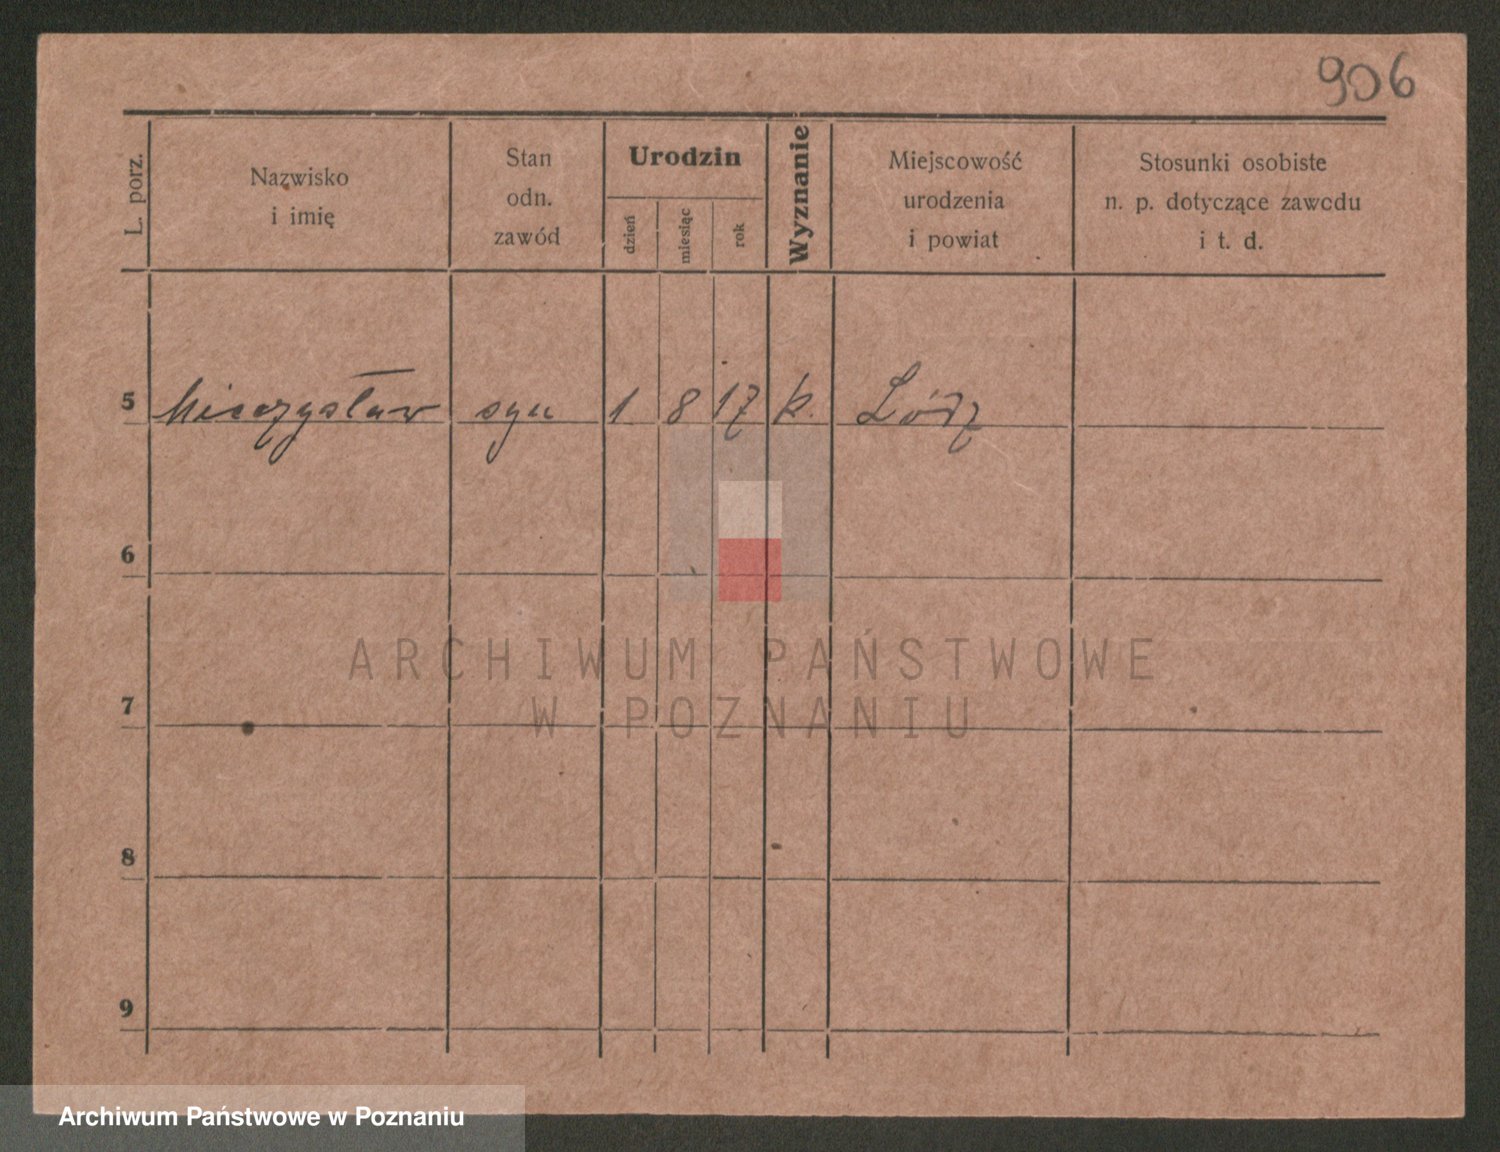 906
L. porz.
Nazwisko
i imię
Stan
odn.
zawód
Urodzin
dzień
miesiąc
rok
Wyznanie
Miejscowość
urodzenia
i powiat
Stosunki osobiste
n. p. dotyczące zawodu
i t. d.
5 Mieczysław syn 1 8 17 k. Łódź
6
7
8
9
ARCHIWUM PAŃSTWOWE
W POZNANIU
Archiwum Państwowe w Poznaniu